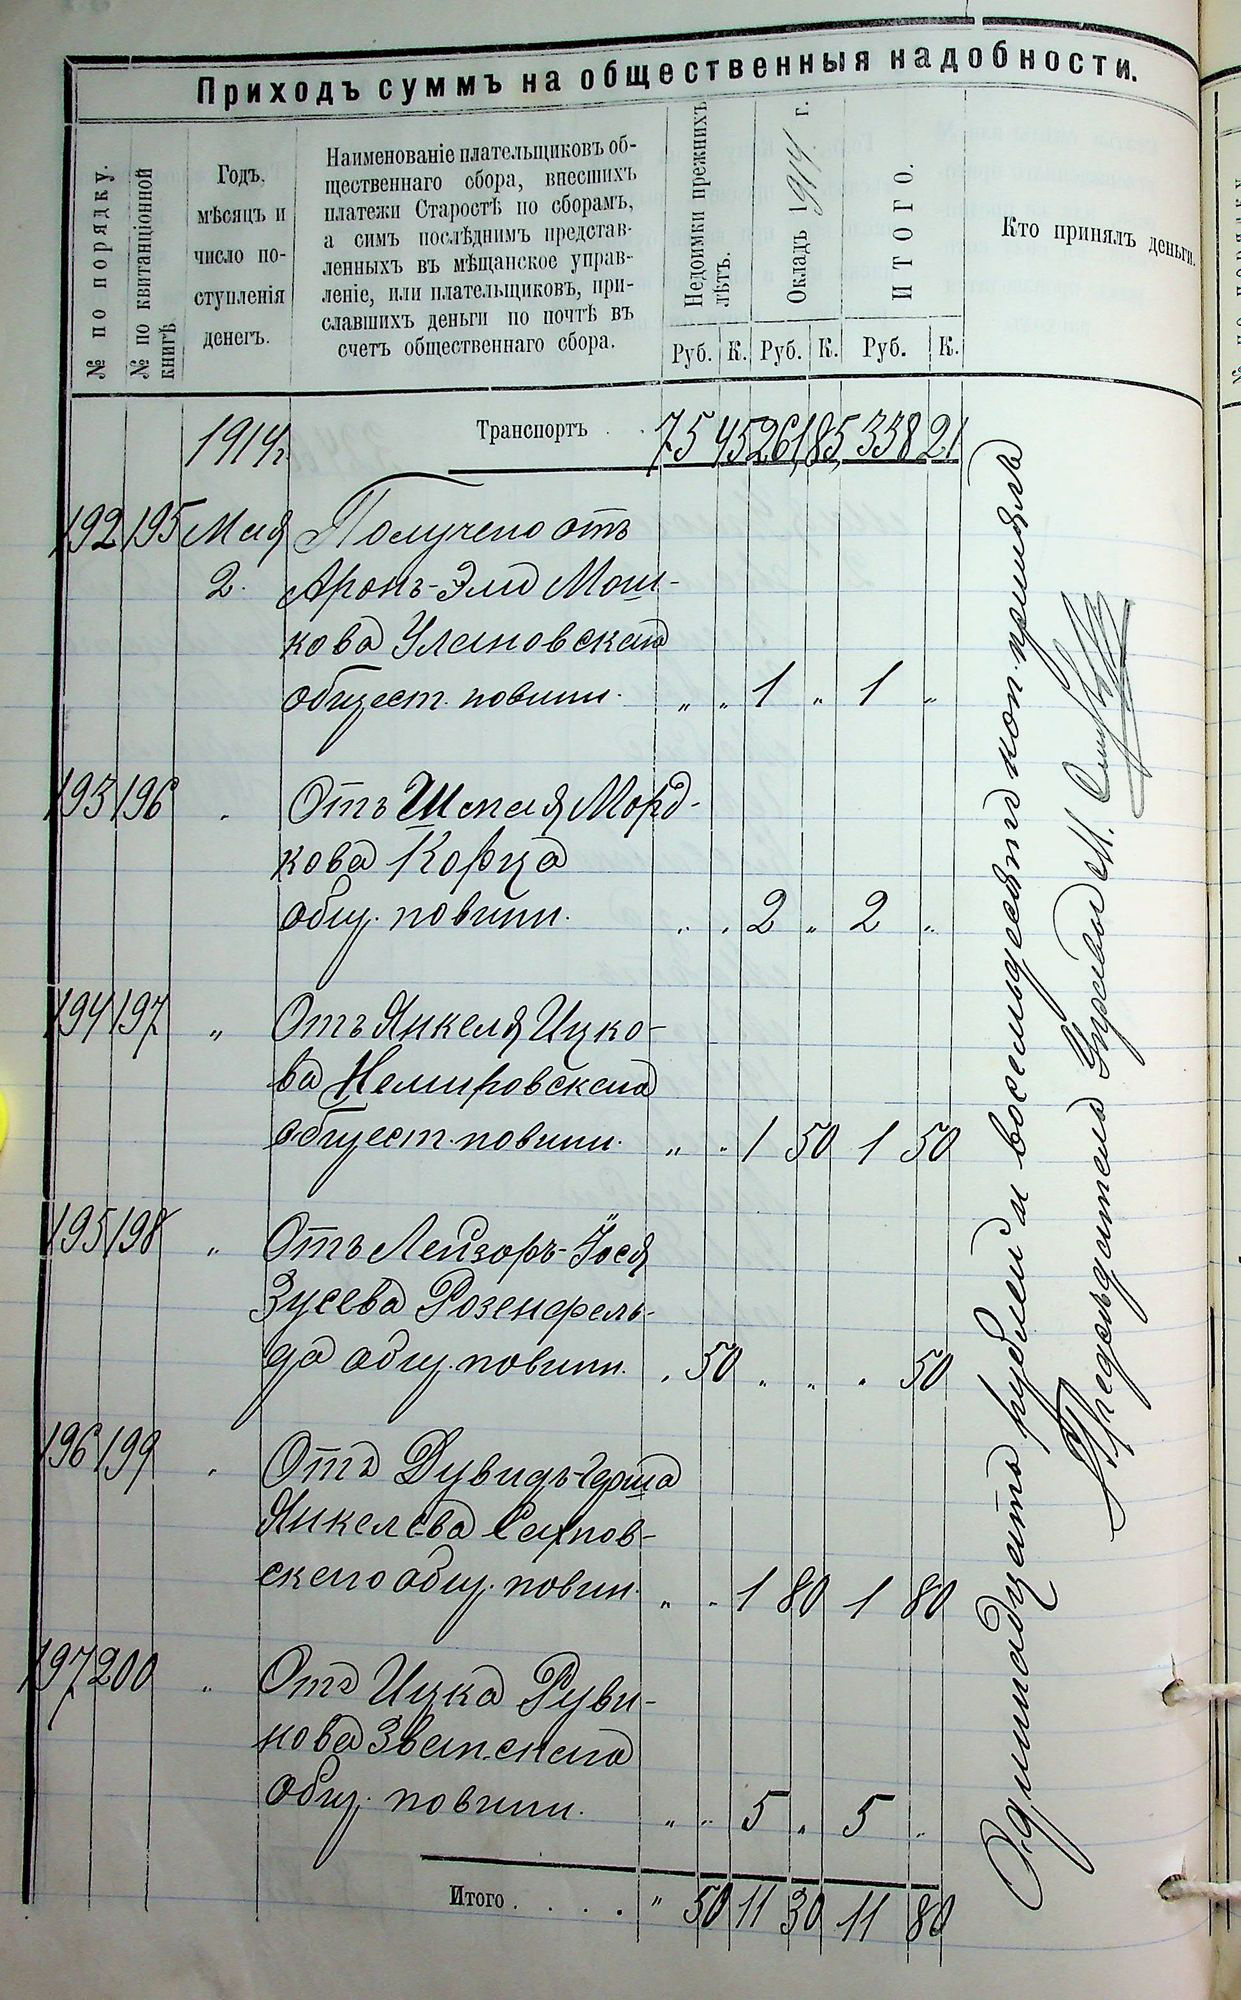 Приходъ суммъ на общественныя надобности.
№ по порядку.
№ по квитанціонной
книгѣ
Годъ,
мѣсяцъ и
число по-
ступленія
денегъ.
Наименованіе плательщиковъ об-
щественнаго сбора, внесшихъ
платежи Старостѣ по сборамъ,
а симъ послѣднимъ представ-
ленныхъ въ мѣщанское управ-
леніе, или плательщиковъ, при-
славшихъ деньги по почтѣ въ
счетъ общественнаго сбора.
Недоимки прежнихъ
лѣтъ.
Окладъ 1914 г.
ИТОГО.
Кто принялъ деньги.
Руб. К. Руб. К. Руб. К.
1914 г. Транспортъ . . 75 45 261 85 338 21
192 195 Мая Получено отъ
2. Аронъ-Эли Мош-
кова Улановскаго
общест. повинн. „ „ 1 „ 1 „
193 196 „ Отъ Шмая Морд-
кова Корца
общ. повинн. „ „ 2 „ 2 „
194 197 „ Отъ Янкеля Ицко-
ва Немировскаго
общест. повинн. „ „ 1 50 1 50
195 198 „ Отъ Лейзоръ-Іося
Зусева Розенфель-
да общ. повинн. „ 50 „ „ „ 50
196 199 „ Отъ Дувидъ-Герша
Янкелева
скаго общ. повин. „ „ 1 80 1 80
197 200 „ Отъ Ицка Руви-
нова
общ. повинн. „ „ 5 „ 5 „
Итого . . . . „ 50 11 30 11 80
Одиннадцать рублей и восемьдесятъ коп. принялъ
Предсѣдатель Управы М.